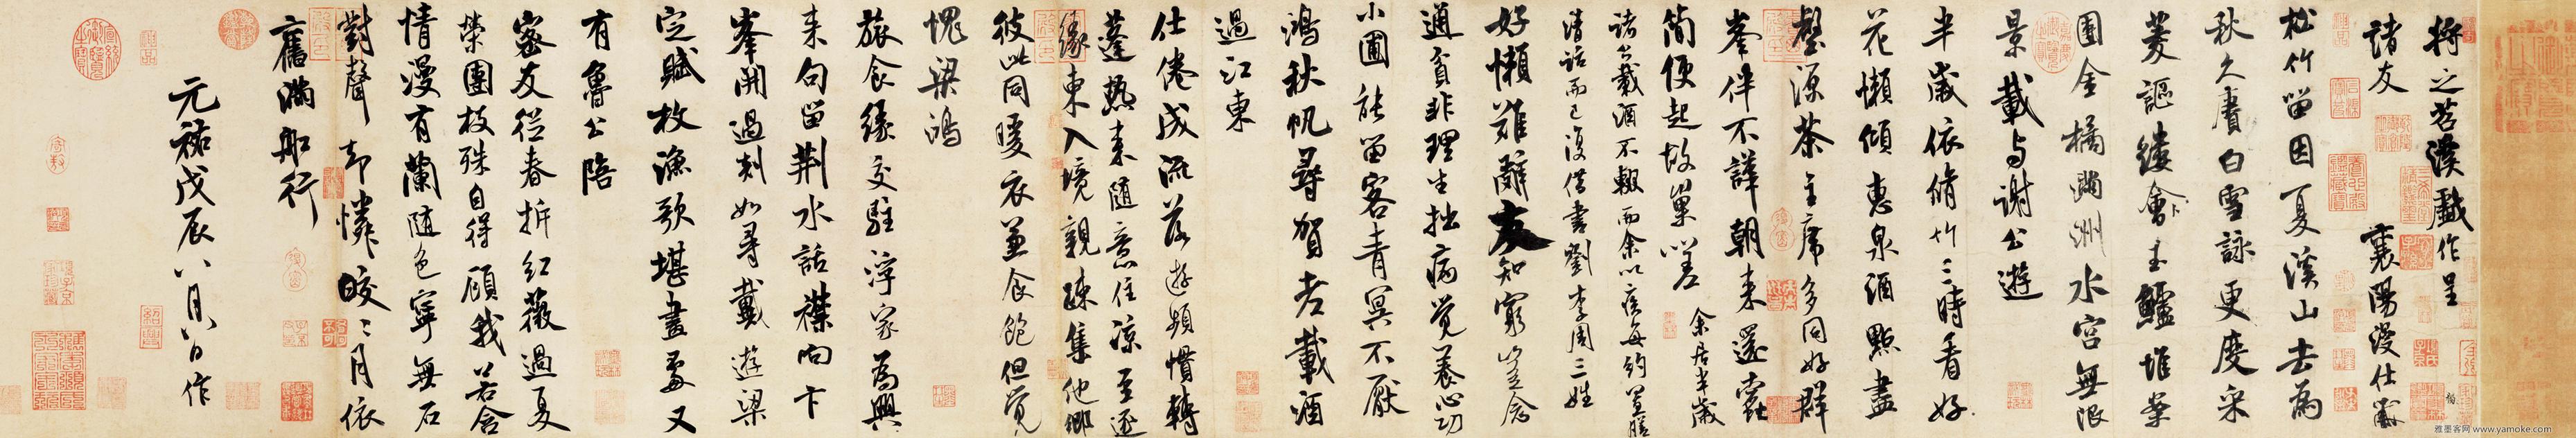 將之苕溪戲作呈
諸友 襄陽漫仕黻
松竹留因夏溪山去為
秋久賡白雪詠更度采
菱謳縷會卜玉鱸堆案
團金橘滿洲水宮無限
景載与謝公遊
半歲依修竹三時看好
花懶傾惠泉酒點盡
壑源茶主席多同好群
峯伴不譁朝來還蠹
簡便起故巢嗟 余居半歲
諸公載酒不輟而余以疾每約置膳
清話而已復借書劉李周三姓
好懶難辭友知窮豈念
通貧非理生拙病覺養心功
小圃能留客青冥不厭
鴻秋帆尋賀老載酒
過江東
仕倦成流落遊頻慣轉
蓬熱來隨意住涼至逐
緣東入境親疎集他鄉
彼此同暖衣兼食飽但覺
愧梁鴻
旅食緣交駐浮家為興
來句留荊水話襟向卞
峯開過剡如尋戴遊梁
定賦枚漁歌堪畫處又
有魯公陪
密友從春拆紅薇過夏
榮團枝殊自得顧我若含
情漫有蘭隨色寧無石
對聲却憐皎〻月依
舊滿船行
元祐戊辰八月八日作
雅墨客网 www.yamoke.com